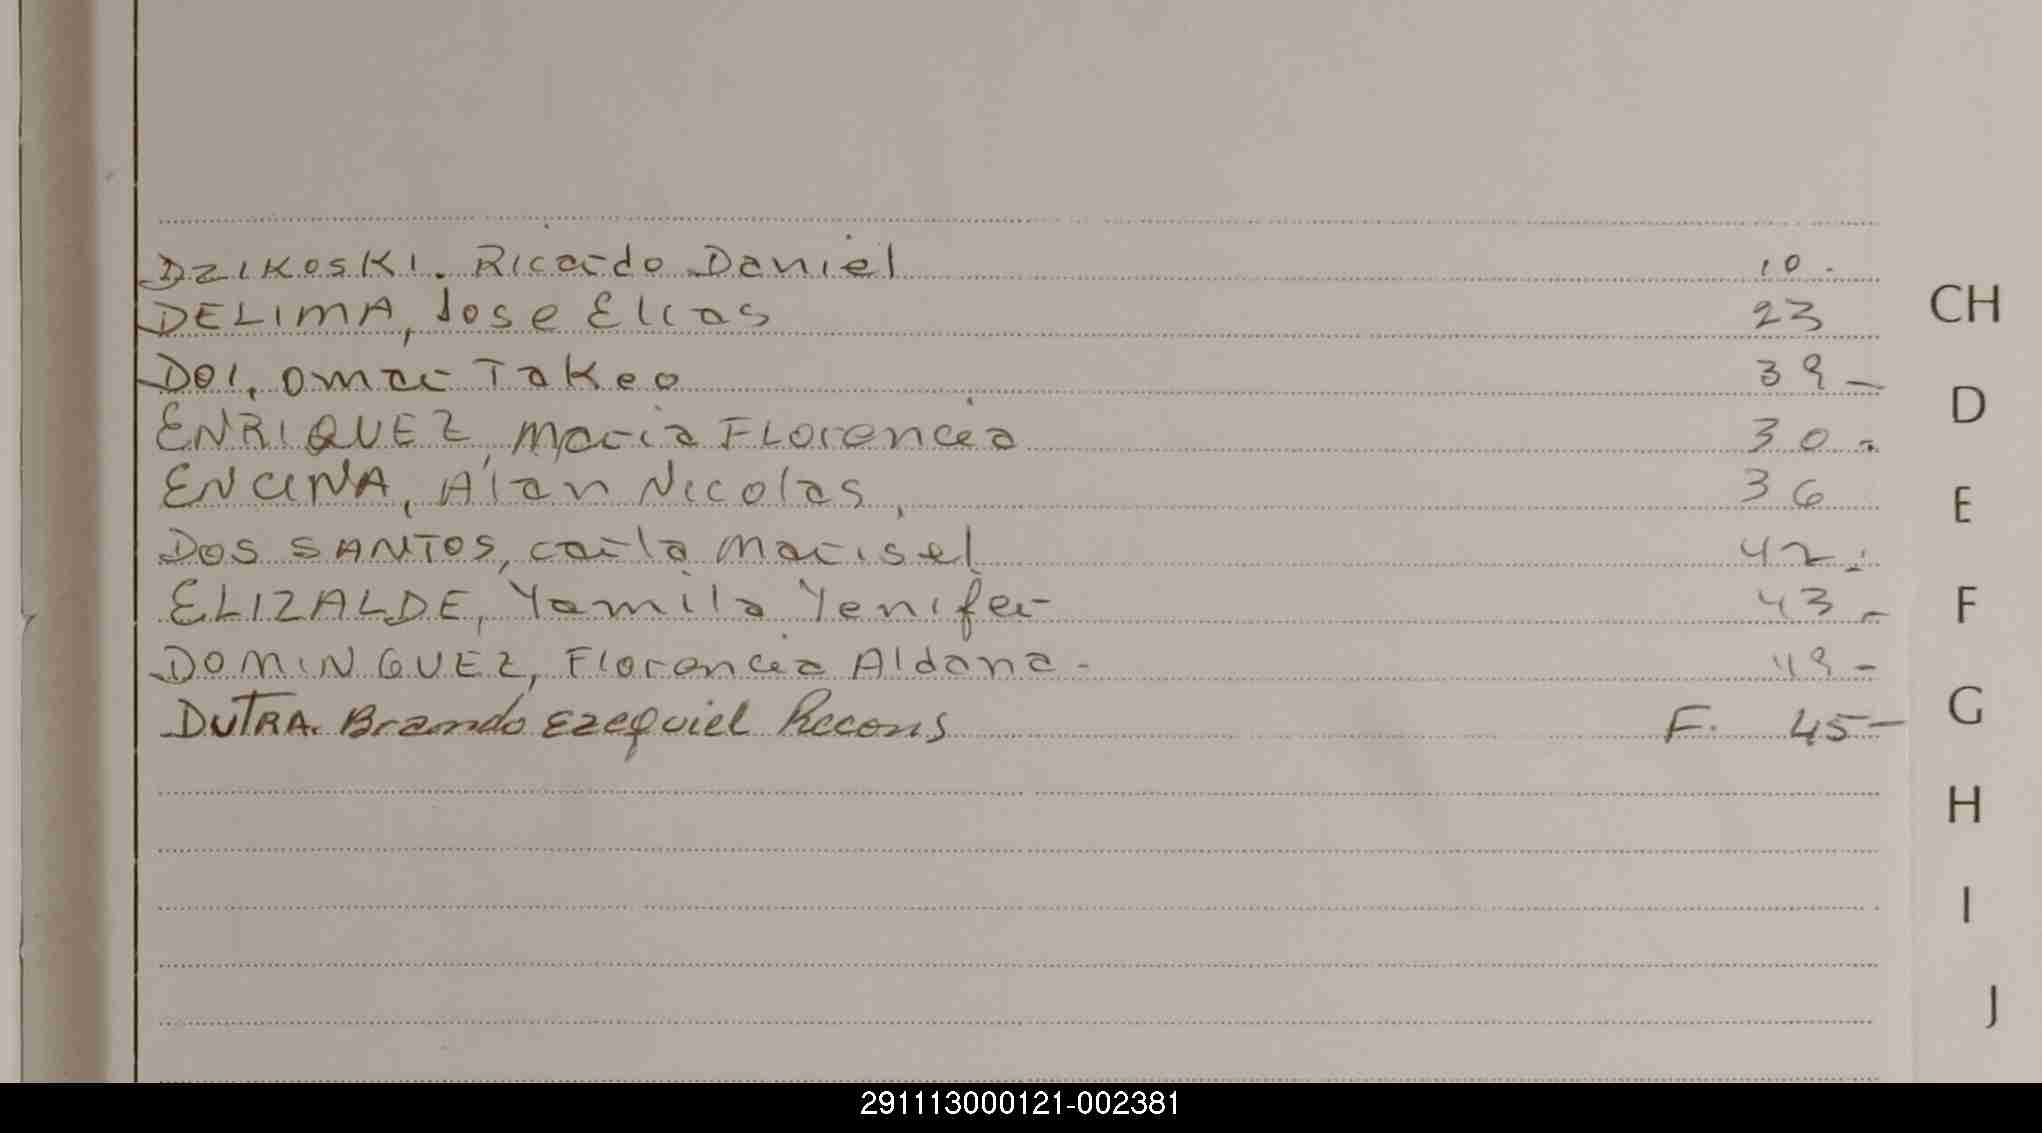 DZIKOSKI. Ricardo Daniel 10.
DELIMA, Jose Elias 23
DOI, Omar Takeo 39-
ENRIQUEZ, Maria Florencia 30.
ENCINA, Alan Nicolas, 36
DOS SANTOS, Carla Marisel 42.
ELIZALDE, Yamila Yenifer 43-
DOMINGUEZ, Florencia Aldana- 49-
DUTRA. Brando Ezequiel Recons F. 45-
CH
D
E
F
G
H
I
J
291113000121-002381